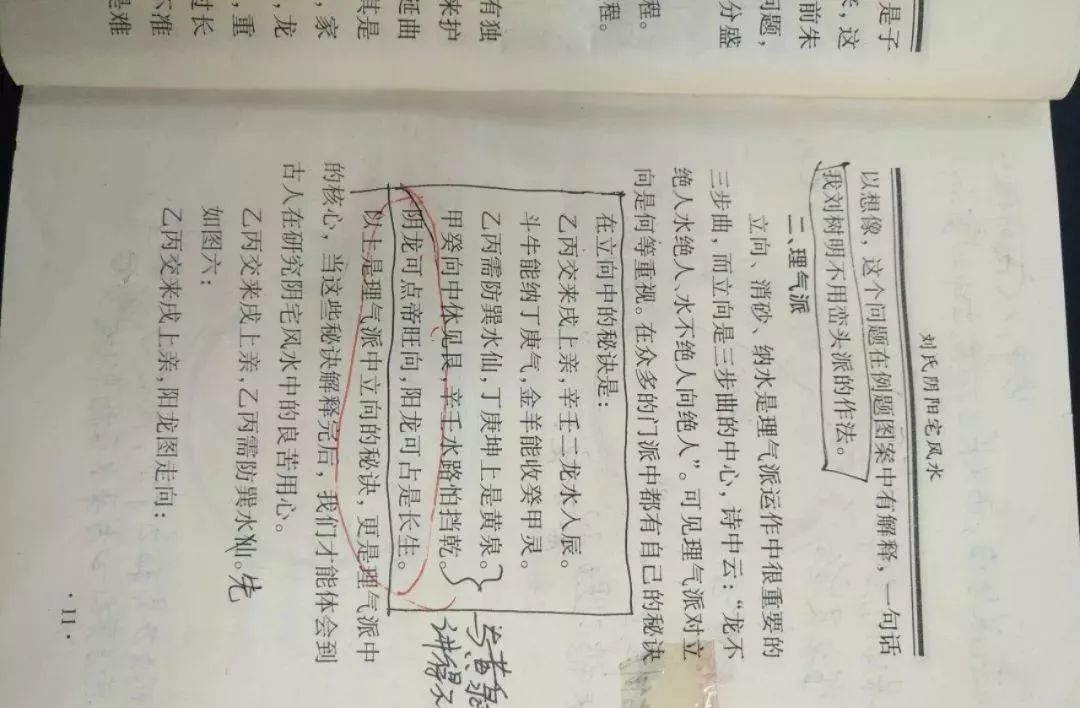 是子
，这
前朱
问题，
分盛
程。
程。
有独
来护
延曲
其是
，家
，龙
，重
过长
不准
是难
刘氏阴阳宅风水
以想像，这个问题在例题图案中有解释，一句话
我刘树明不用峦头派的作法。
二、理气派
立向、消砂、纳水是理气派运作中很重要的
三步曲，而立向是三步曲的中心，诗中云：“龙不
绝人水绝人、水不绝人向绝人”。可见理气派对立
向是何等重视。在众多的门派中都有自己的秘诀
在立向中的秘诀是：
乙丙交来戌上亲，辛壬二龙水人辰。
斗牛能纳丁庚气，金羊能收癸甲灵。
乙丙需防巽水仙，丁庚坤上是黄泉。
甲癸向中休见艮，辛壬水路怕挡乾。
阴龙可点帝旺向，阳龙可占是长生。
以上是理气派中立向的秘诀，更是理气派中
的核心，当这些秘诀解释完后，我们才能体会到
古人在研究阴宅风水中的良苦用心。
乙丙交来戌上亲，乙丙需防巽水仙。先
如图六：
乙丙交来戌上亲，阳龙图走向：
黄泉
讲得
·11·